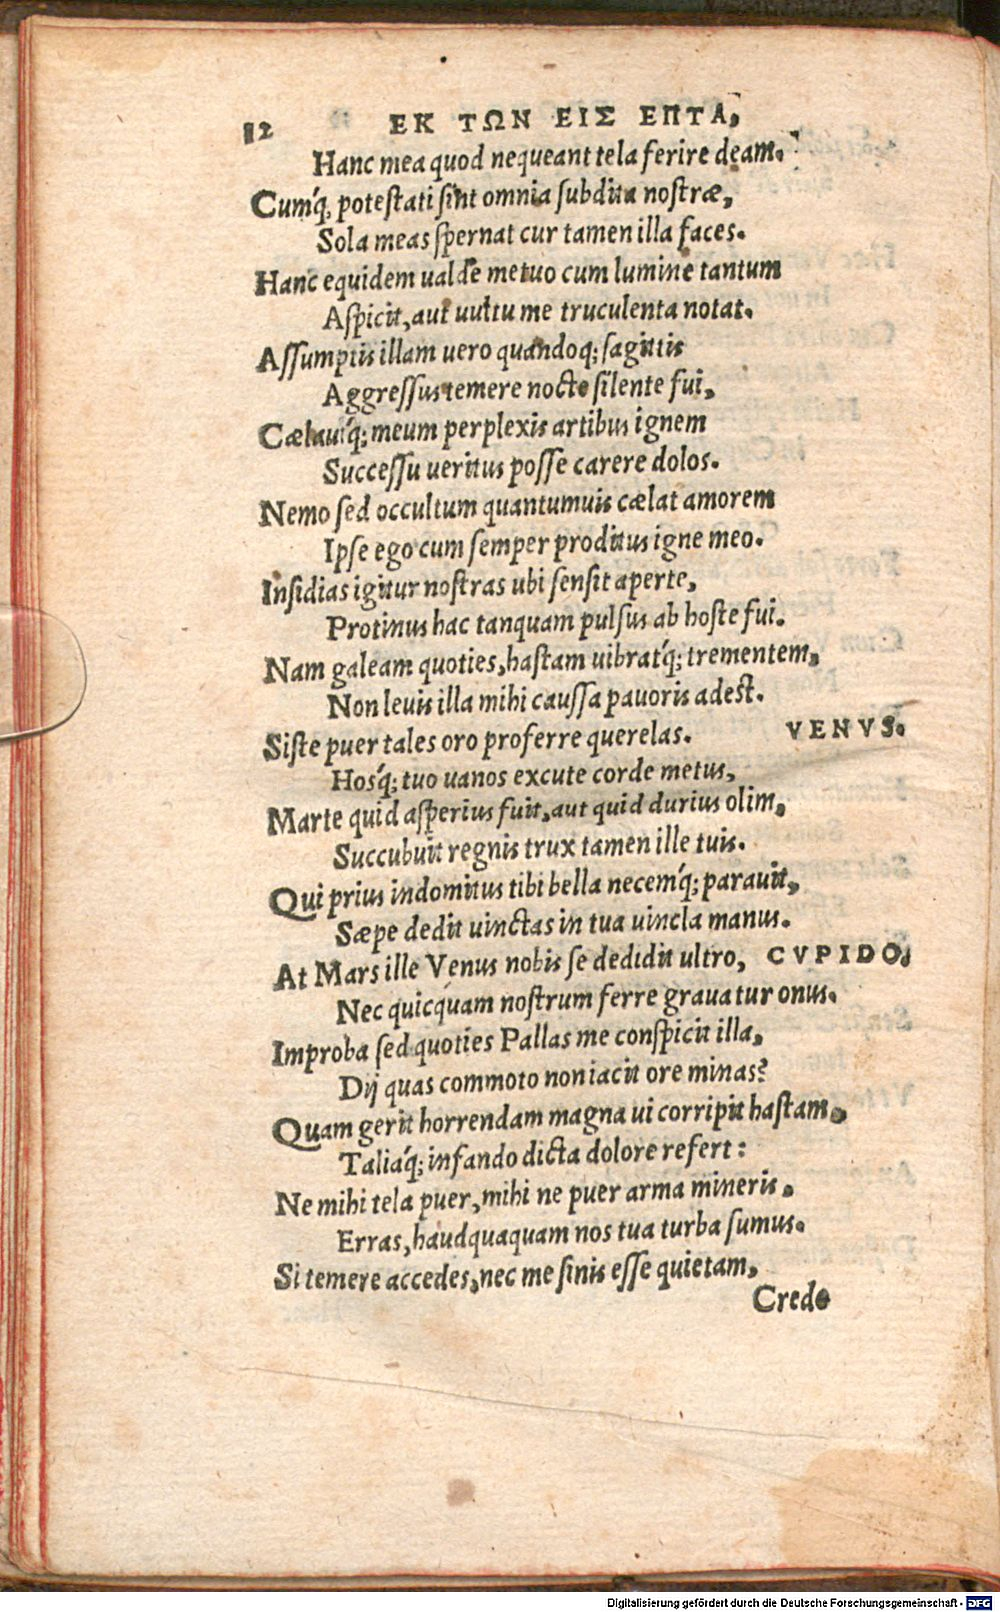 12 ΕΚ ΤΩΝ ΕΙΣ ΕΠΤΑ,
Hanc mea quod nequeant tela ferire deam.
Cumq́; potestati sint omnia subdita nostræ,
Sola meas spernat cur tamen illa faces.
Hanc equidem ualde metuo cum lumine tantum
Aspicit, aut uultu me truculenta notat.
Assumptis illam uero quandoq; sagittis
Aggressus temere nocte silente fui,
Cælauiq́; meum perplexis artibus ignem
Successu ueritus posse carere dolos.
Nemo sed occultum quantumuis cælat amorem
Ipse ego cum semper proditus igne meo.
Insidias igitur nostras ubi sensit aperte,
Protinus hac tanquam pulsus ab hoste fui.
Nam galeam quoties, hastam uibratq́; trementem,
Non leuis illa mihi caussa pauoris adest.
Siste puer tales oro proferre querelas. VENVS.
Hosq́; tuo uanos excute corde metus,
Marte quid asperius fuit, aut quid durius olim,
Succubuit regnis trux tamen ille tuis.
Qui prius indomitus tibi bella necemq́; parauit,
Sæpe dedit uinctas in tua uincla manus.
At Mars ille Venus nobis se dedidit ultro, CVPIDO.
Nec quicquam nostrum ferre grauatur onus.
Improba sed quoties Pallas me conspicit illa,
Dij quas commoto non iacit ore minas?
Quam gerit horrendam magna ui corripit hastam,
Taliaq́; infando dicta dolore refert:
Ne mihi tela puer, mihi ne puer arma mineris,
Erras, haudquaquam nos tua turba sumus.
Si temere accedes, nec me sinis esse quietam,
Credo
Digitalisierung gefördert durch die Deutsche Forschungsgemeinschaft - DFG